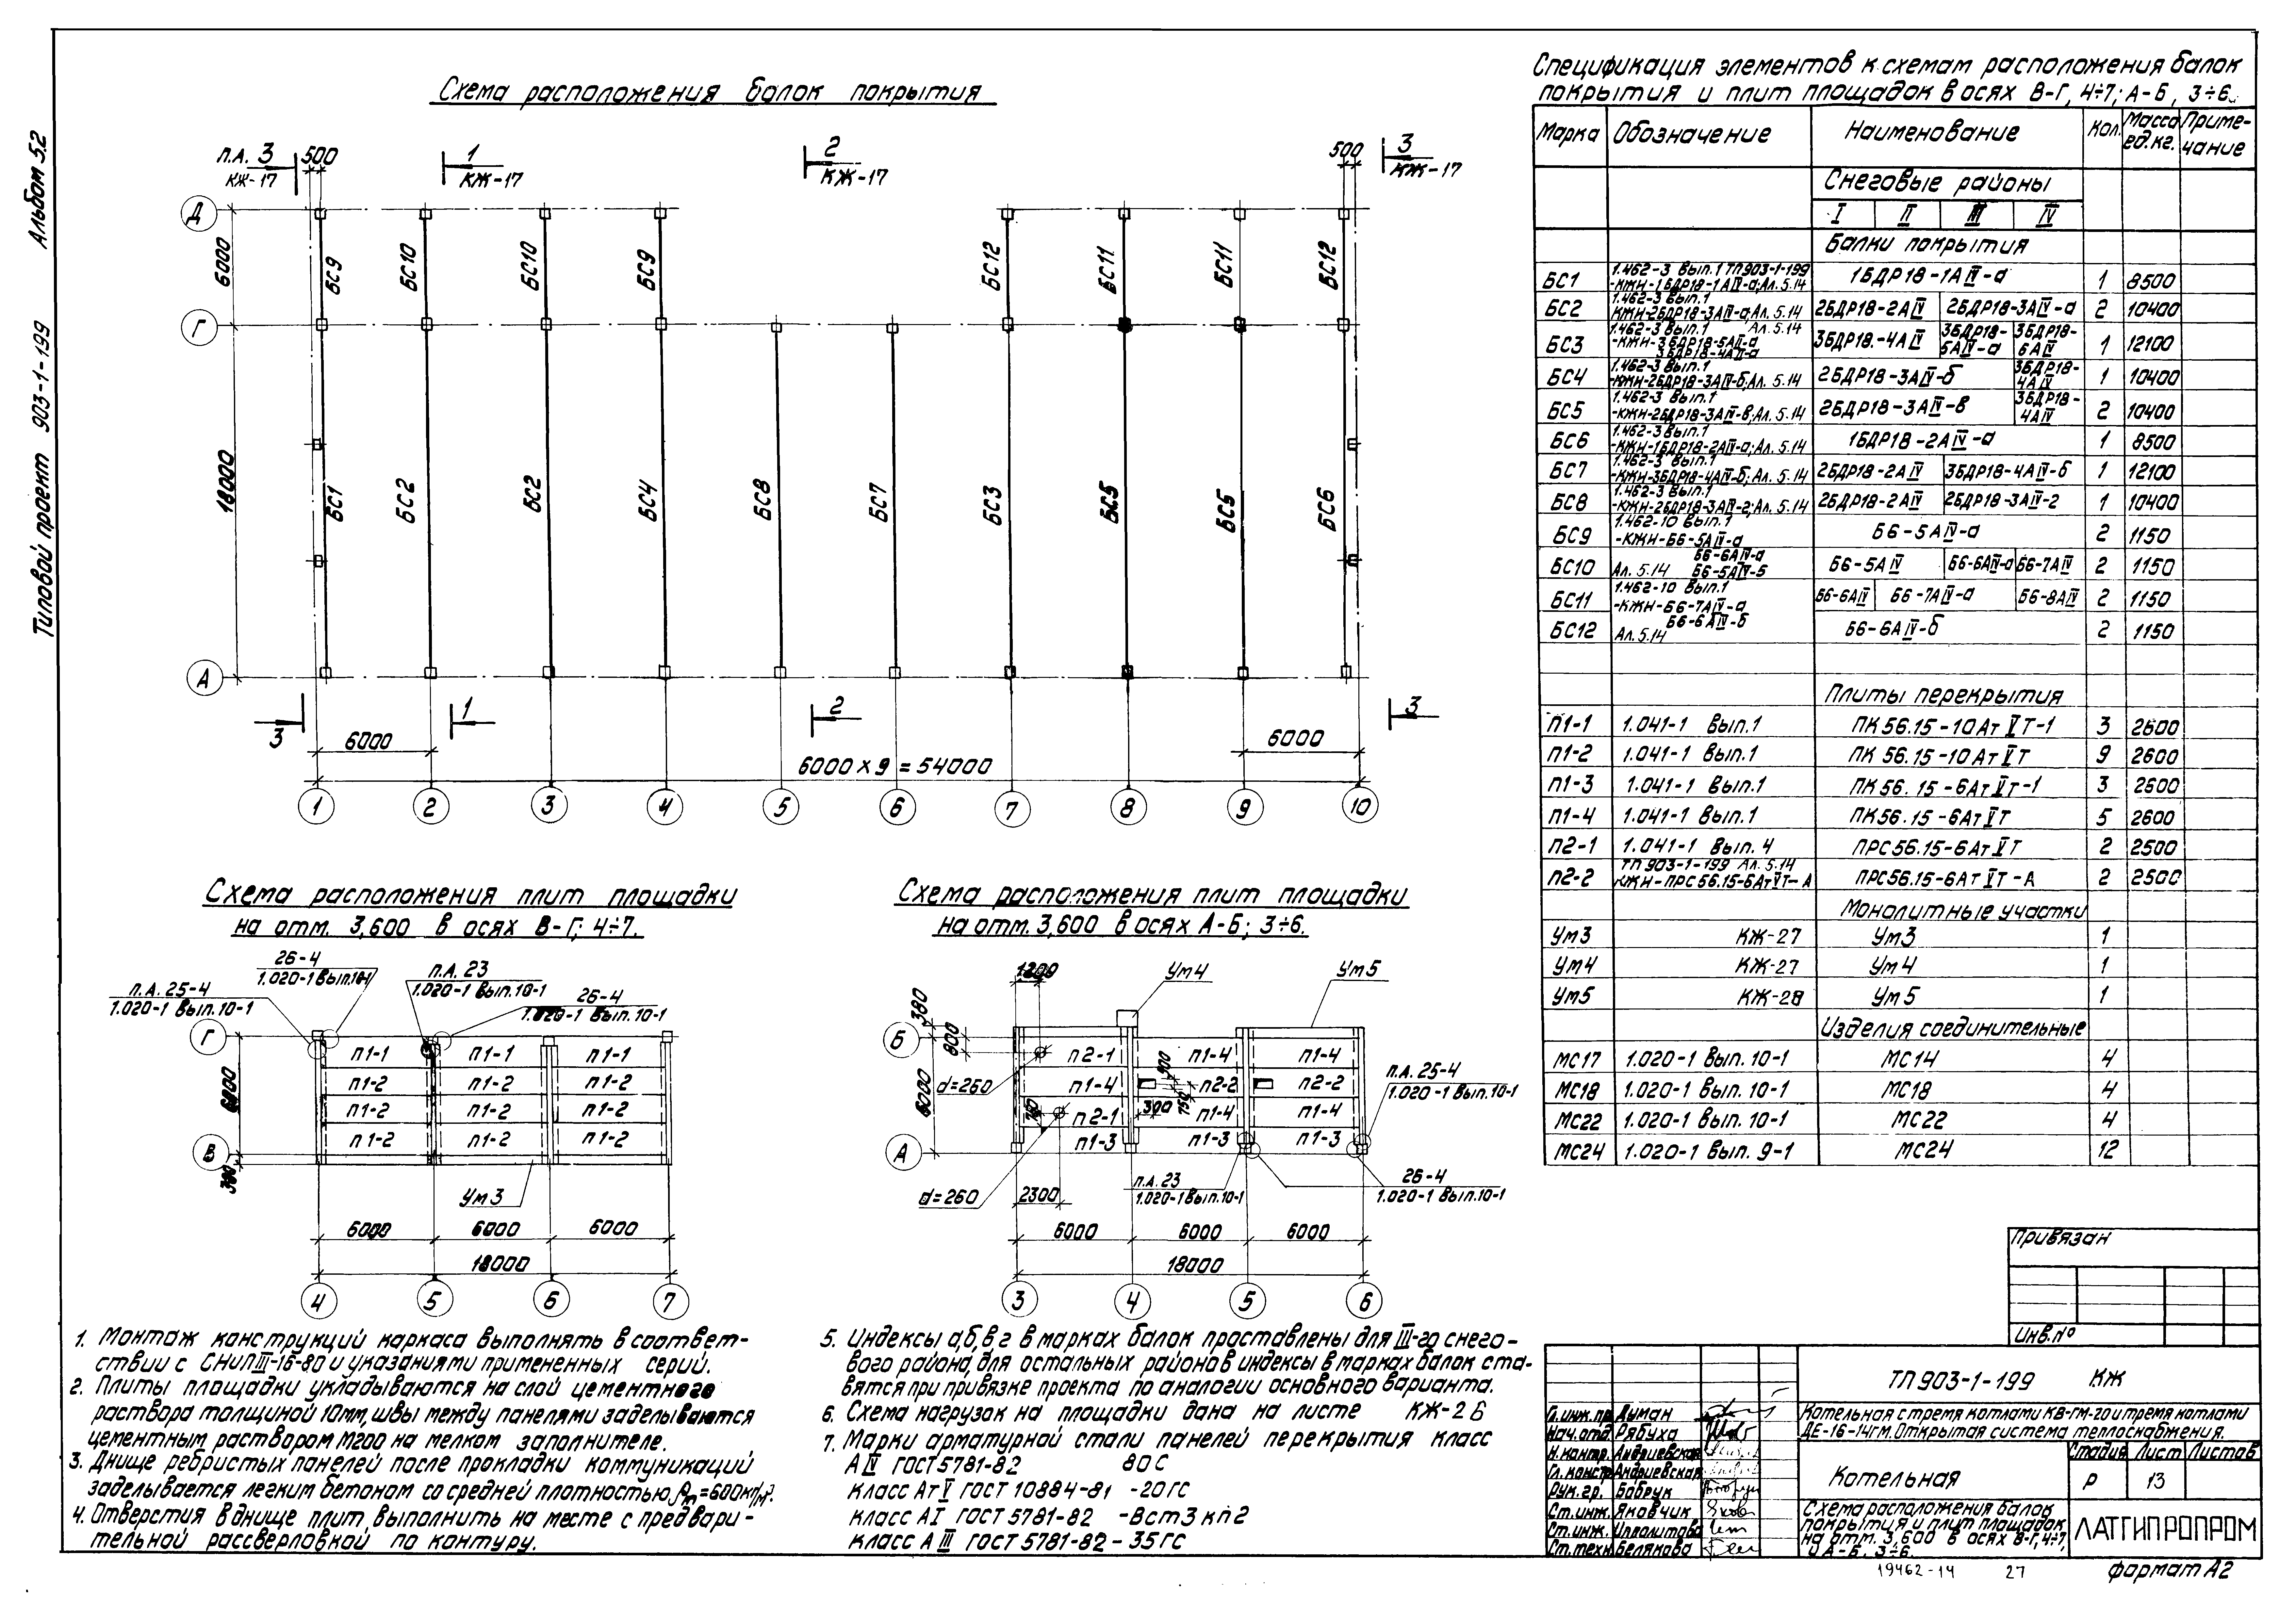 Альбом 5.2
Типовой проект 903-1-199
Схема расположения балок покрытия
П.А. 3
КЖ-17
500
1
КЖ-17
2
КЖ-17
500
3
КЖ-17
Д
Г
А
6000
18000
БС9
БС10
БС10
БС9
БС12
БС11
БС11
БС12
БС1
БС2
БС2
БС4
БС8
БС7
БС3
БС5
БС5
БС6
3
1
2
3
6000
6000
6000 х 9 = 54000
1
2
3
4
5
6
7
8
9
10
Схема расположения плит площадки
на отм. 3,600 в осях В-Г; 4÷7.
26-4
1.020-1 Вып.10-1
п.А. 23
1.020-1 Вып.10-1
п.А. 25-4
1.020-1 Вып.10-1
26-4
1.020-1 Вып. 10-1
Г
В
6000
300
п1-1 п1-1 п1-1
п1-2 п1-2 п1-2
п1-2 п1-2 п1-2
п1-2 п1-2 п1-2
Ум3
6000 6000 6000
18000
4 5 6 7
Схема расположения плит площадки
на отм. 3,600 в осях А-Б; 3÷6.
1200
Ум4
Ум5
380
800
6000
Б
А
п2-1 п1-4 п1-4
d=260
п1-4 п2-2 п2-2
п2-1 п1-4 п1-4
п1-3 п1-3 п1-3
900
750
300
п.А. 25-4
1.020-1 Вып.10-1
п.А. 23
1.020-1 Вып.10-1
26-4
1.020-1 Вып.10-1
d=260
2300
6000 6000 6000
18000
3 4 5 6
1. Монтаж конструкций каркаса выполнять в соответ-
ствии с СНиП III-16-80 и указаниями примененных серий.
2. Плиты площадки укладываются на слой цементного
раствора толщиной 10мм, швы между панелями заделываются
цементным раствором М200 на мелком заполнителе.
3. Днище ребристых панелей после прокладки коммуникаций
заделывается легким бетоном со средней плотностью ρm=600кг/м³.
4. Отверстия в днище плит выполнить на месте с предвари-
тельной рассверловкой по контуру.
5. Индексы а,б,в г в марках балок проставлены для III-го снего-
вого района, для остальных районов индексы в марках балок ста-
вятся при привязке проекта по аналогии основного варианта.
6. Схема нагрузок на площадки дана на листе КЖ-26
7. Марки арматурной стали панелей перекрытия класс
А IV ГОСТ 5781-82 80С
класс Ат V ГОСТ 10884-81 -20ГС
класс АI ГОСТ 5781-82 -Вст3кп2
класс А III ГОСТ 5781-82 - 35ГС
Спецификация элементов к схемам расположения балок
покрытия и плит площадок в осях В-Г, 4÷7; А-Б, 3÷6.
Марка Обозначение Наименование Кол. Масса ед.кг. Приме-чание
Снеговые районы
I II III IV
Балки покрытия
БС1 1.462-3 Вып.1 ТП903-1-199 -КЖИ-1БДР18-1АIV-а; Ал. 5.14 1БДР18-1АIV-а 1 8500
БС2 1.462-3 Вып.1 КЖИ-2БДР18-3АIV-а; Ал. 5.14 2БДР18-2АIV 2БДР18-3АIV-а 2 10400
БС3 1.462-3 Вып.1 Ал. 5.14 -КЖИ-3БДР18-5АIV-а 3БДР18-4АIV-а 3БДР18.-4АIV 3БДР18-5АIV-а 3БДР18-6АIV 1 12100
БС4 1.462-3 Вып.1 -КЖИ-2БДР18-3АIV-б; Ал. 5.14 2БДР18-3АIV-б 3БДР18-4АIV 1 10400
БС5 1.462-3 Вып.1 -КЖИ-2БДР18-3АIV-в; Ал. 5.14 2БДР18-3АIV-в 3БДР18-4АIV 2 10400
БС6 1.462-3 Вып.1 -КЖИ-1БДР18-2АIV-а; Ал. 5.14 1БДР18-2АIV-а 1 8500
БС7 1.462-3 Вып.1 -КЖИ-3БДР18-4АIV-б; Ал. 5.14 2БДР18-2АIV 3БДР18-4АIV-б 1 12100
БС8 1.462-3 Вып.1 -КЖИ-2БДР18-3АIV-г; Ал. 5.14 2БДР18-2АIV 2БДР18-3АIV-г 1 10400
БС9 1.462-10 Вып.1 -КЖИ-Б6-5АIV-а Б6-5АIV-а 2 1150
БС10 Б6-6АIV-а Ал. 5.14 Б6-5АIV-Б Б6-5АIV Б6-6АIV-а Б6-7АIV 2 1150
БС11 1.462-10 Вып.1 -КЖИ-Б6-7АIV-а Б6-6АIV Б6-7АIV-а Б6-8АIV 2 1150
БС12 Б6-6АIV-б Ал.5.14 Б6-6АIV-б 2 1150
Плиты перекрытия
П1-1 1.041-1 Вып.1 ПК 56.15-10Ат V Т-1 3 2600
П1-2 1.041-1 Вып.1 ПК 56.15-10Ат V Т 9 2600
П1-3 1.041-1 Вып.1 ПК 56.15-6Ат V Т-1 3 2600
П1-4 1.041-1 Вып.1 ПК 56.15-6Ат V Т 5 2600
П2-1 1.041-1 Вып. 4 ПРС 56.15-6Ат V Т 2 2500
П2-2 ТП 903-1-199 Ал. 5.14 КЖИ-ПРС 56.15-6Ат V Т-А ПРС 56.15-6Ат V Т-А 2 2500
Монолитные участки
Ум3 КЖ-27 Ум3 1
Ум4 КЖ-27 Ум4 1
Ум5 КЖ-28 Ум5 1
Изделия соединительные
МС17 1.020-1 Вып. 10-1 МС14 4
МС18 1.020-1 Вып. 10-1 МС18 4
МС22 1.020-1 Вып. 10-1 МС22 4
МС24 1.020-1 Вып. 9-1 МС24 12
Привязан
Инв.№
ТП 903-1-199 КЖ
Котельная с тремя котлами КВ-ГМ-20 и тремя котлами
ДЕ-16-14ГМ. Открытая система теплоснабжения.
Гл.инж.пр. Дыман
Нач.отд. Рябуха
Н.контр. Андриевская
Гл.констр. Андриевская
Рук.гр. Бобрук
Ст.инж. Яковчик
Ст.инж. Ипполитова
Ст.техн. Белякова
Котельная
Стадия Лист Листов
Р 13
Схема расположения балок
покрытия и плит площадок
на отм. 3,600 в осях В-Г, 4÷7,
и А-Б, 3÷6.
ЛАТГИПРОПРОМ
19462-14 27
формат А2